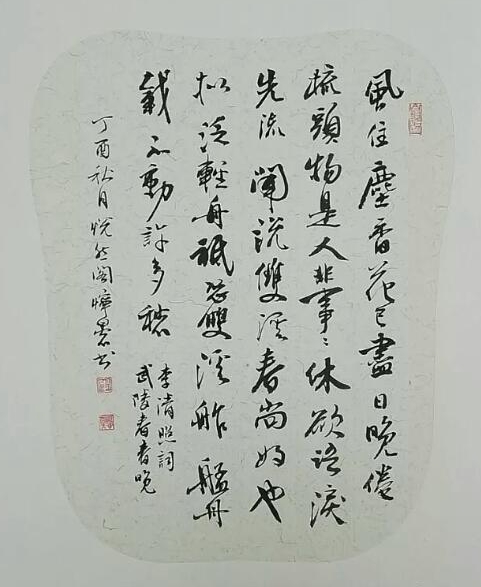 風住塵香花已盡日晚倦
梳頭物是人非事〻休欲語淚
先流聞說雙溪春尚好也
拟泛輕舟祇恐雙溪舴艋舟
載不動許多愁
李清照詞
武陵春春晚
丁酉秋月悅然閣墨书